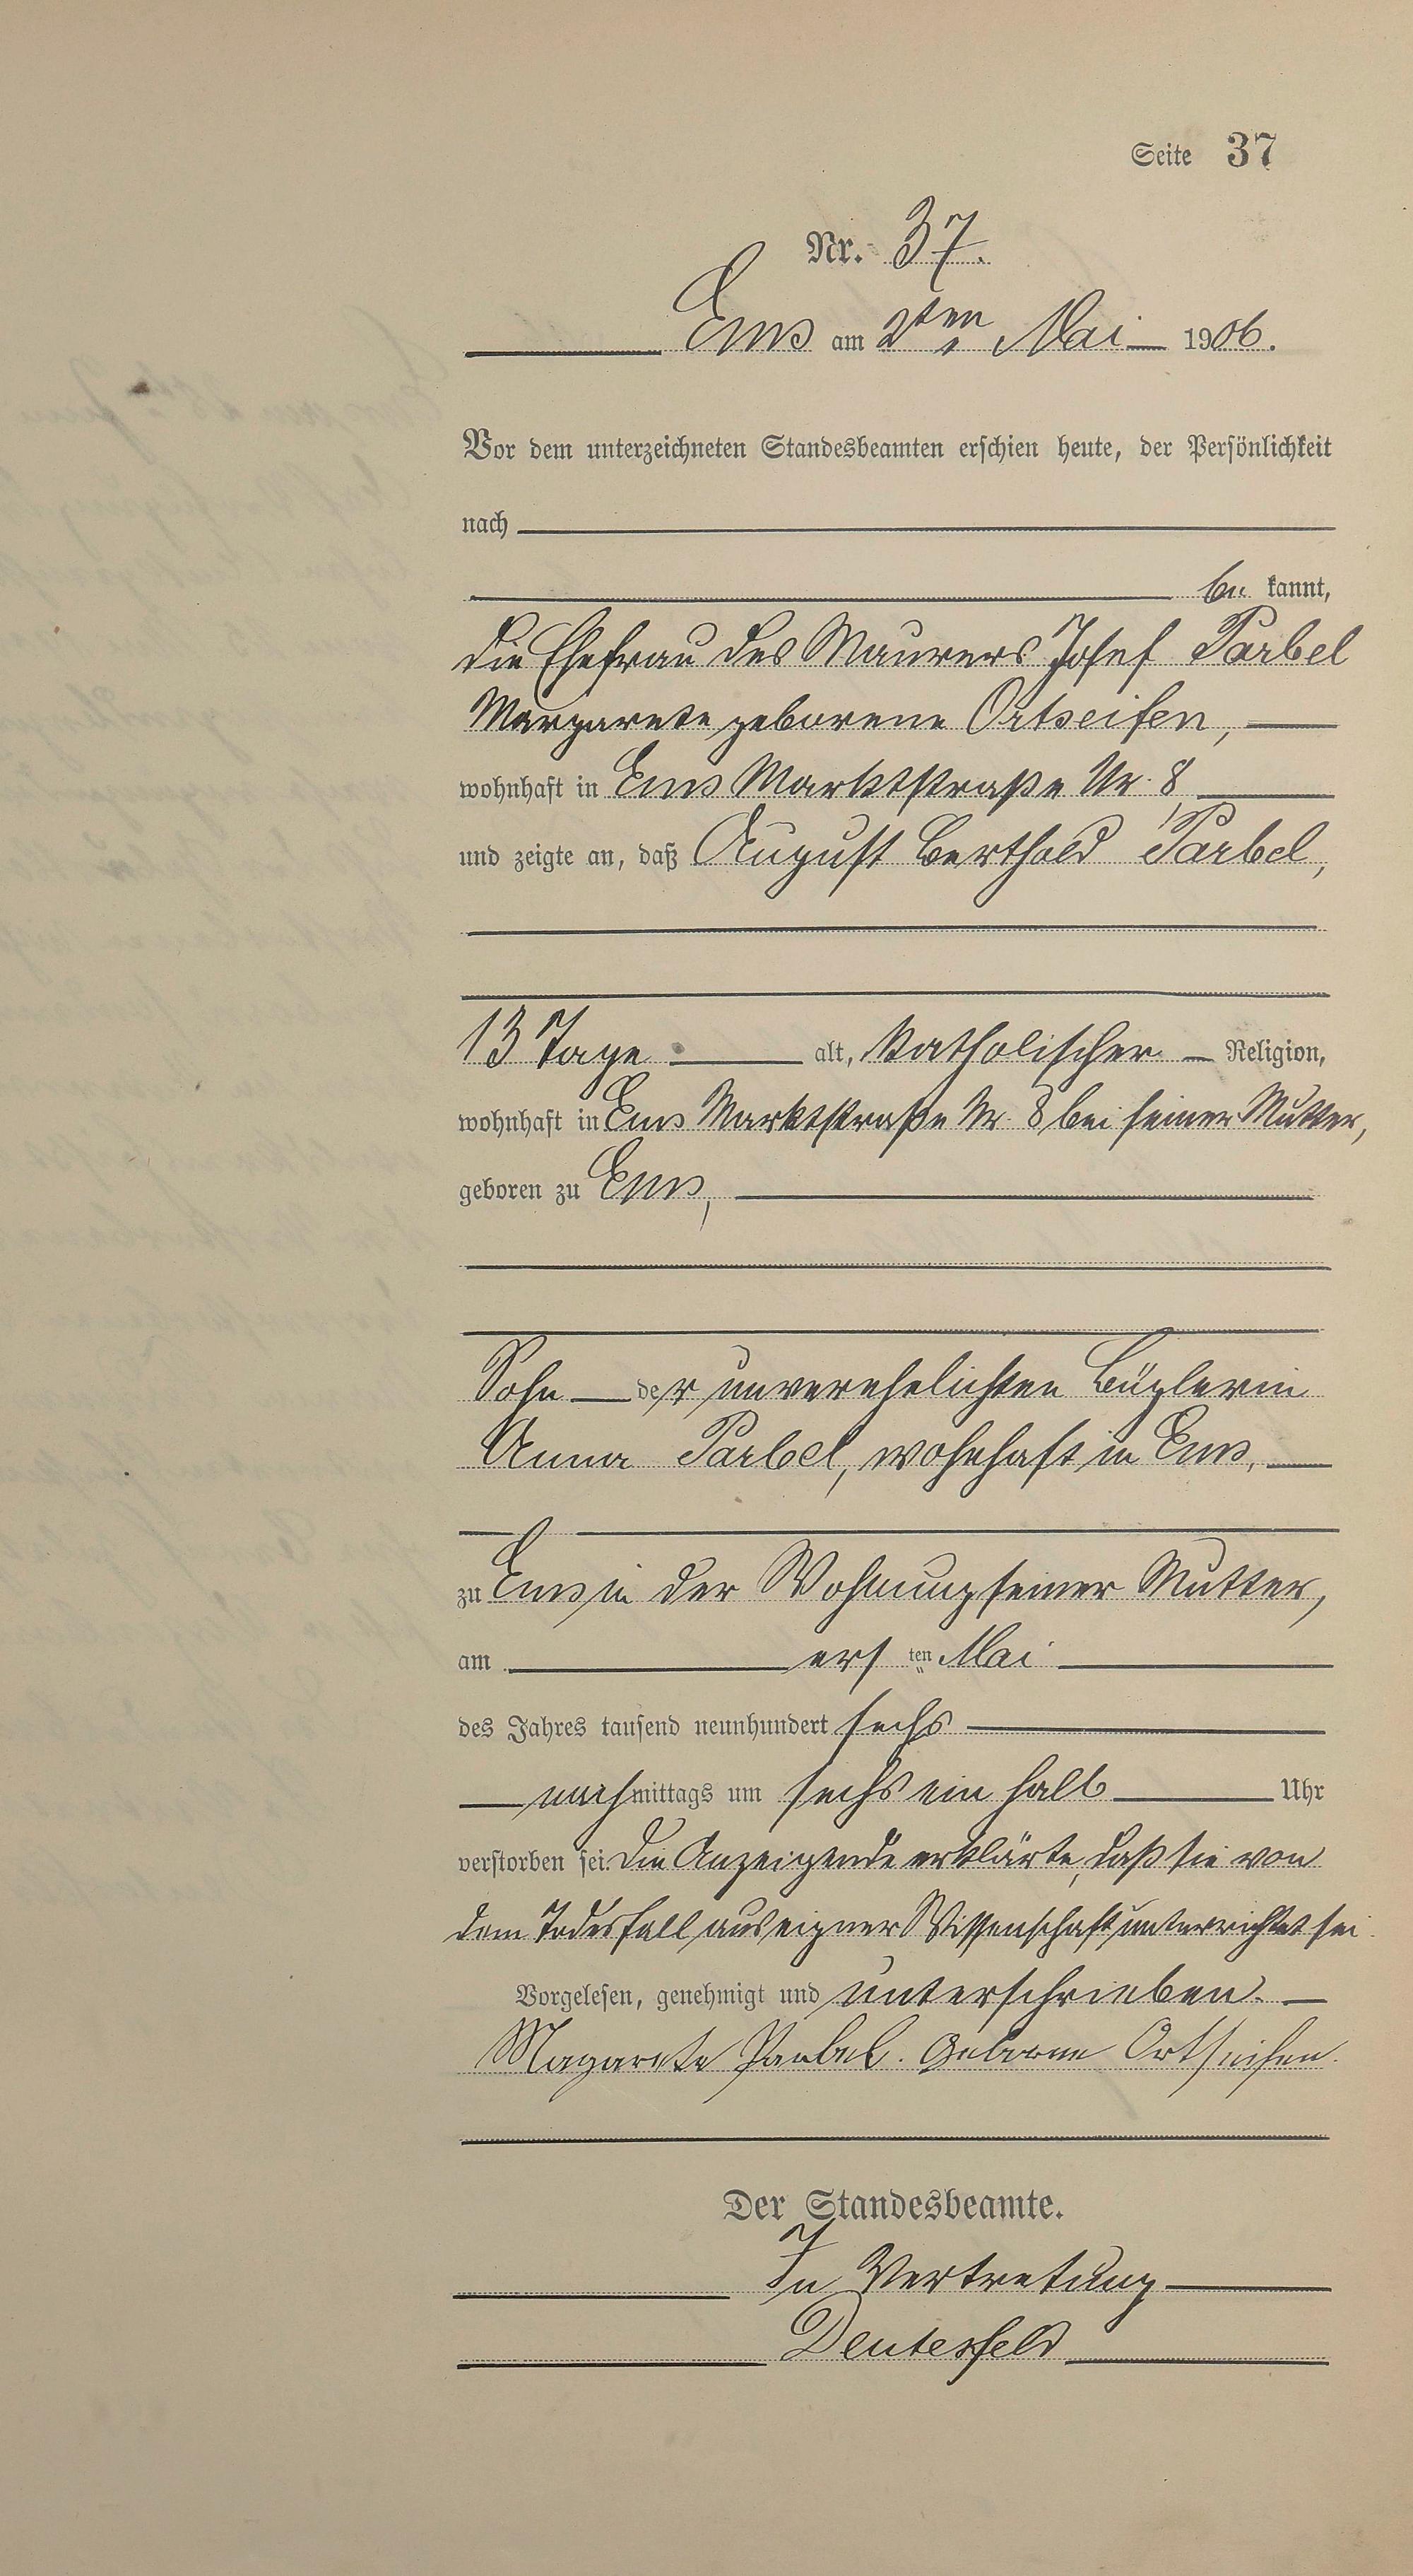 Seite 37
Nr. 37.
Ems am 2ten Mai 1906.
Vor dem unterzeichneten Standesbeamten erschien heute, der Persönlichkeit
nach
be kannt,
die Ehefrau des Maurers Josef Parbel
Margarete geborene Ortseifen,
wohnhaft in Ems Marktstraße Nr. 8
und zeigte an, daß August Berthold Parbel,
13 Tage alt, katholischer Religion,
wohnhaft in Ems Marktstraße Nr. 8 bei seiner Mutter,
geboren zu Ems,
Sohn der unverehelichten Büglerin
Anna Parbel, wohnhaft in Ems,
zu Ems in der Wohnung seiner Mutter,
am ersten Mai
des Jahres tausend neunhundert sechs
nachmittags um sechs ein halb Uhr
verstorben sei. Die Anzeigende erklärte, daß sie von
dem Todesfall aus eigner Wissenschaft unterrichtet sei.
Vorgelesen, genehmigt und unterschrieben.
Magarete Parbel. Geborne Ortseifen.
Der Standesbeamte.
In Vertretung